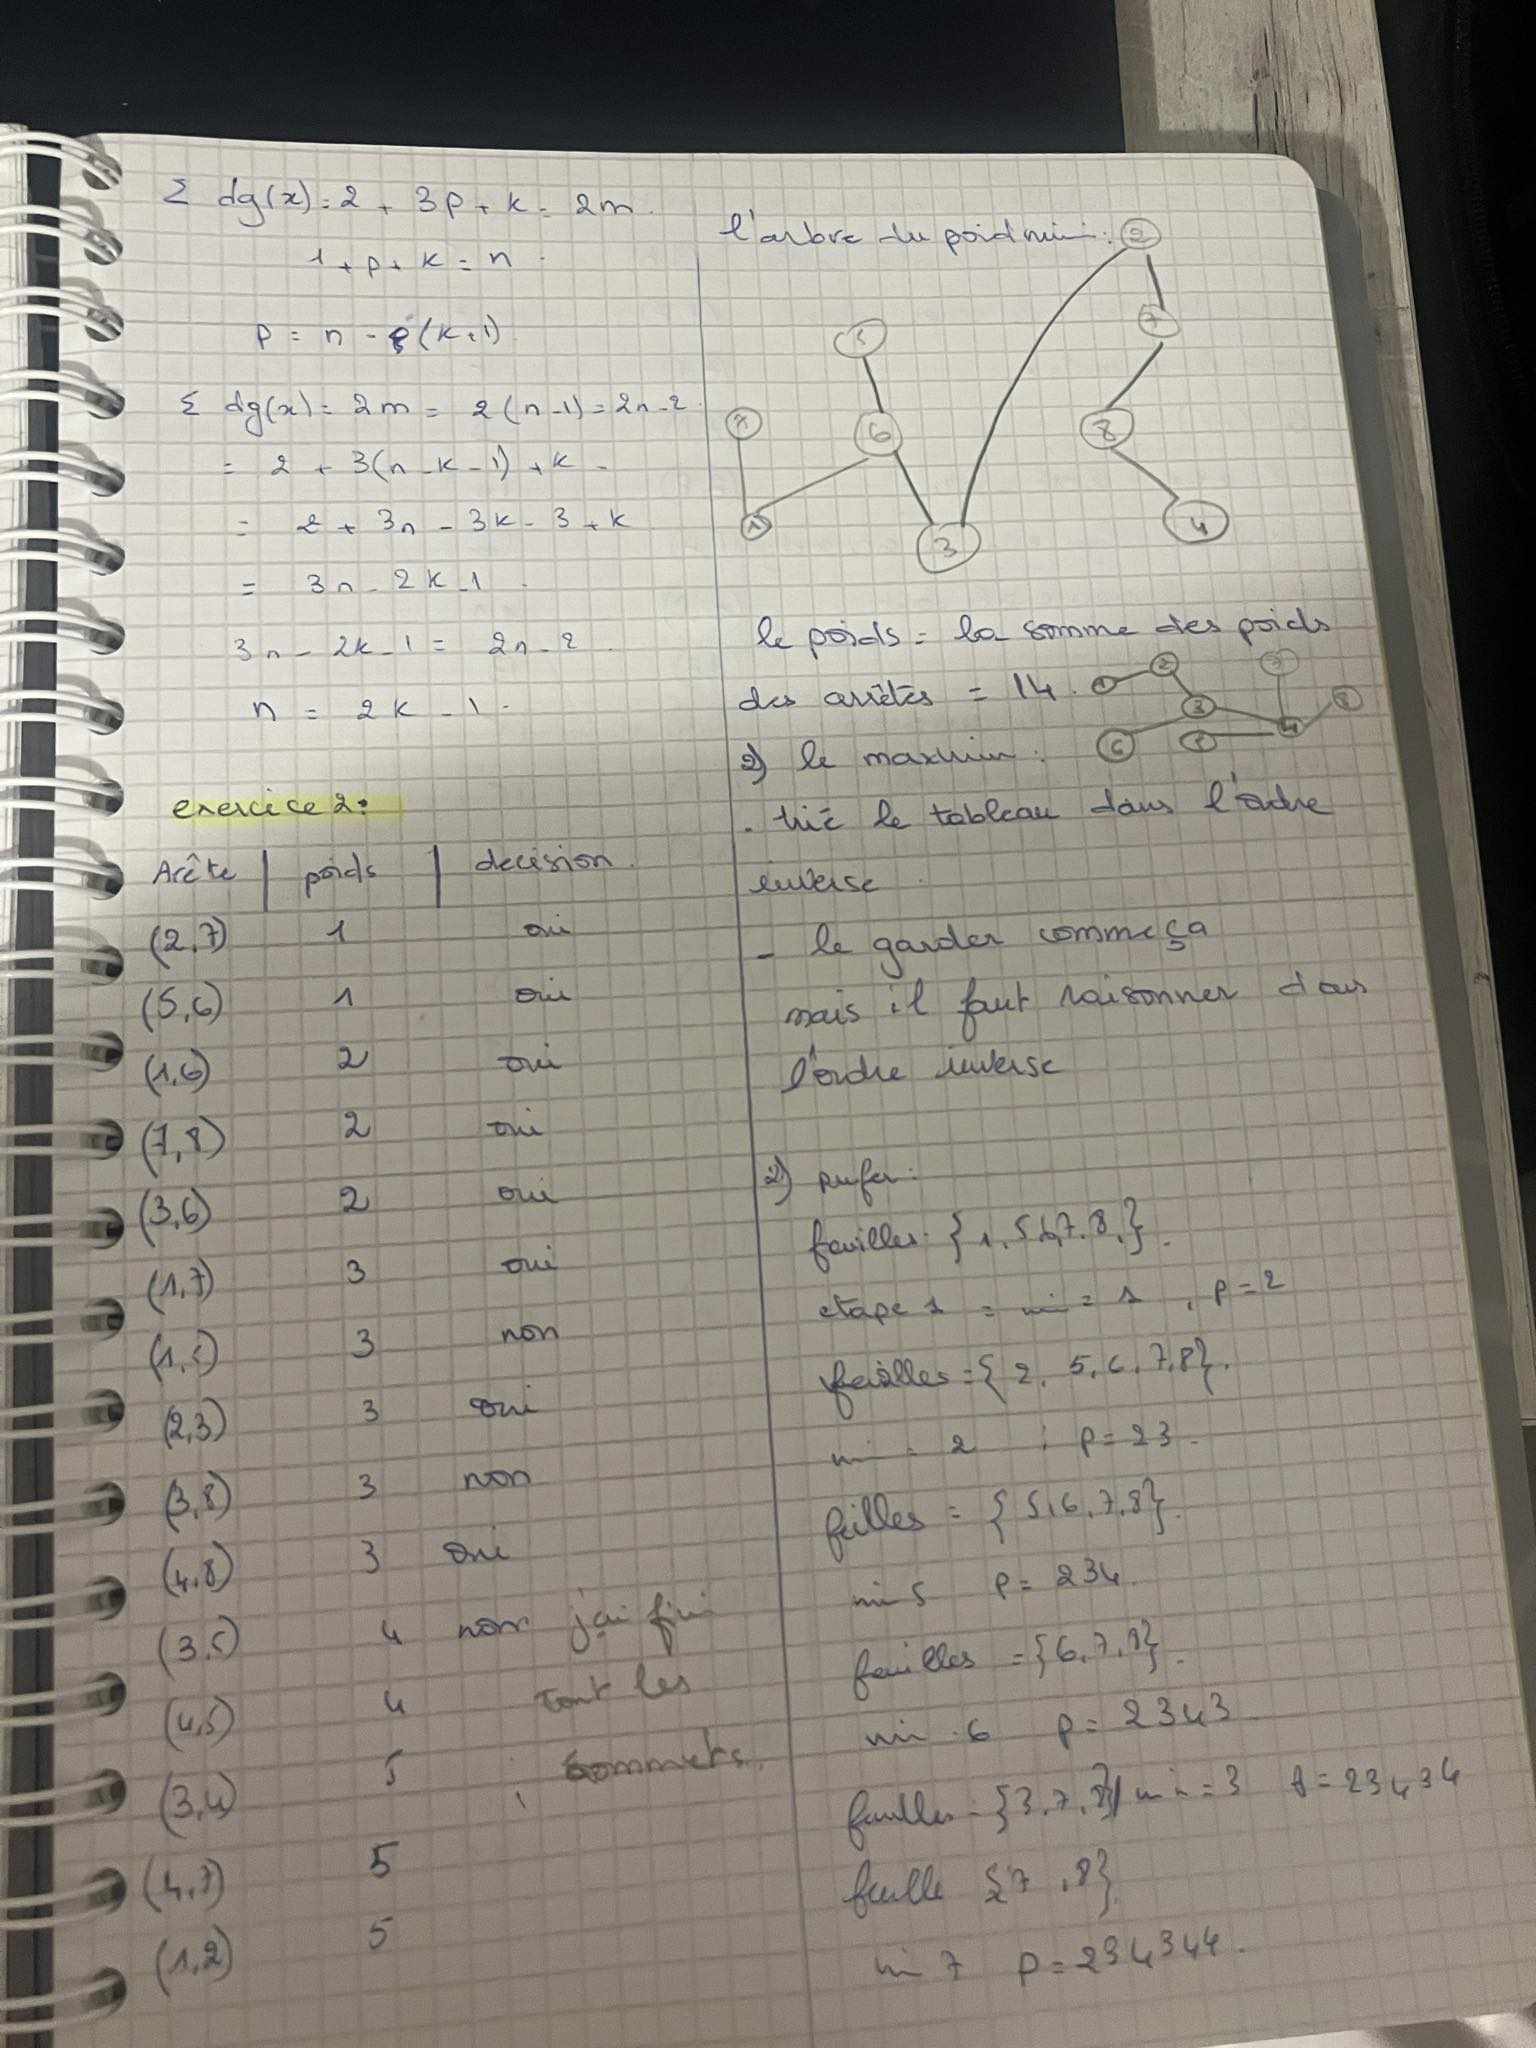 Σ dg(x) = 2 + 3p + k = 2m.
1 + p + k = n.
p = n - (k+1)
Σ dg(x) = 2m = 2(n-1) = 2n-2.
= 2 + 3(n-k-1) + k
= 2 + 3n - 3k - 3 + k
= 3n - 2k - 1.
3n - 2k - 1 = 2n - 2.
n = 2k - 1.
exercice 2:
Arête | poids | decision
(2,7) 1 oui
(5,6) 1 oui
(1,6) 2 oui
(7,8) 2 oui
(3,6) 2 oui
(1,7) 3 oui
(1,5) 3 non
(2,3) 3 oui
(3,8) 3 non
(4,8) 3 oui
(3,5) 4 non j'ai fini
(4,5) 4 tout les
(3,4) 5 sommets.
(4,7) 5
(1,2) 5
l'arbre du poid mini:
2
7
5
7
6
8
1
3
4
le poids = la somme des poids
des arrêtes = 14.
1 2
3
6 4
2) le maximum:
. trié le tableau dans l'ordre
inverse.
- le garder comme ça
mais il faut raisonner dans
l'ordre inverse
2) prufer:
feuilles = {1, 5, 6, 7, 8,}.
etape 1 = min = 1, p = 2
feuilles = {2, 5, 6, 7, 8}.
min = 2 ; p = 23.
feilles = {5, 6, 7, 8}.
min 5 p = 234.
feuilles = {6, 7, 8}.
min 6 p = 2343.
feuilles = {3, 7, 8} / min = 3 = 23434
feuille {7, 8}
min 7 p = 234344.